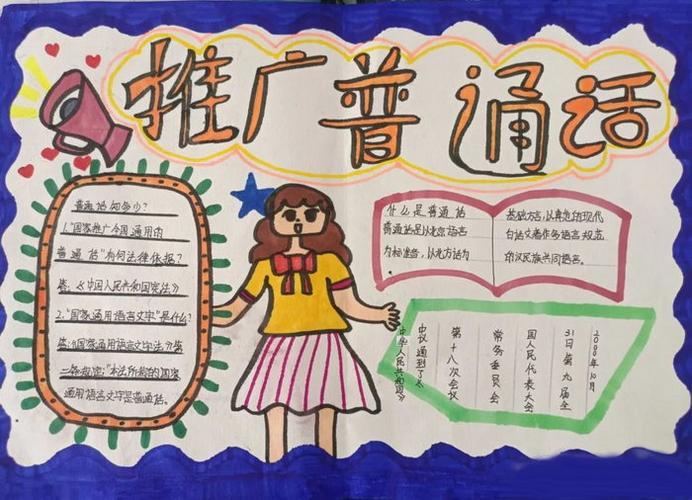 推广普通话
普通话知多少?
1."国家推广全国通用的
普通话"有何法律依据?
答:《中国人民共和国宪法》
2."国家通用语言文字"是什么?
答:《国家通用语言文字法》第
二条规定:"本法所称的国家
通用语言文字是普通话。
什么是普通话
普通话是以北京语音
为标准音,以北方话为
基础方言,以典范的现代
白话文著作为语言规范
的汉民族共同语言。
2000年10月
31日第九届全
国人民代表大会
常务委员会
第十八次会议
中议通到了《
中华人民共和国》